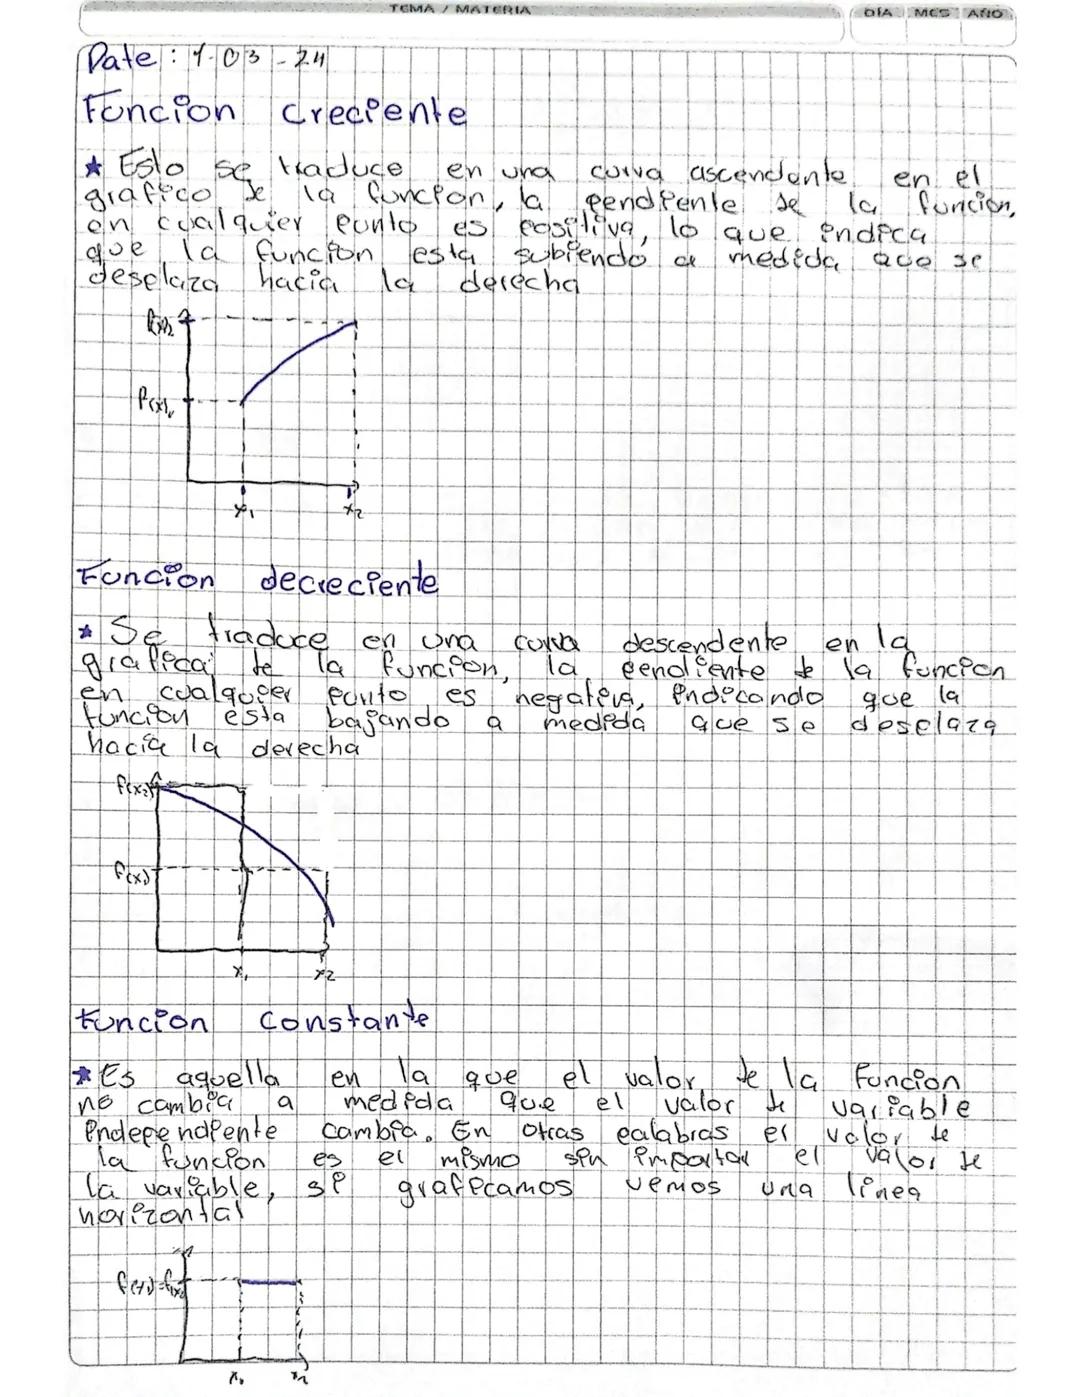 TEMA / MATERIA
DÍA MES AÑO
Date: 1-03-24
Funcion creciente
★ Esto se traduce en una curva ascendente en el
grafico de la funcion, la pendiente de la funcion,
en cualquier punto es positiva, lo que indica
que la funcion esta subiendo a medida que se
desplaza hacia la derecha
f(x)2
f(x)1
x1 x2
Funcion decreciente
★ Se traduce en una curva descendente en la
grafica de la funcion, la pendiente de la funcion
en cualquier punto es negativa, indicando que la
funcion esta bajando a medida que se desplaza
hacia la derecha
f(x2)
f(x)
x1 x2
Funcion constante
★ Es aquella en la que el valor de la funcion
no cambia a medida que el valor de variable
independiente cambia. En otras palabras el valor de
la funcion es el mismo sin importar el valor de
la variable, si graficamos vemos una linea
horizontal
x1 x2